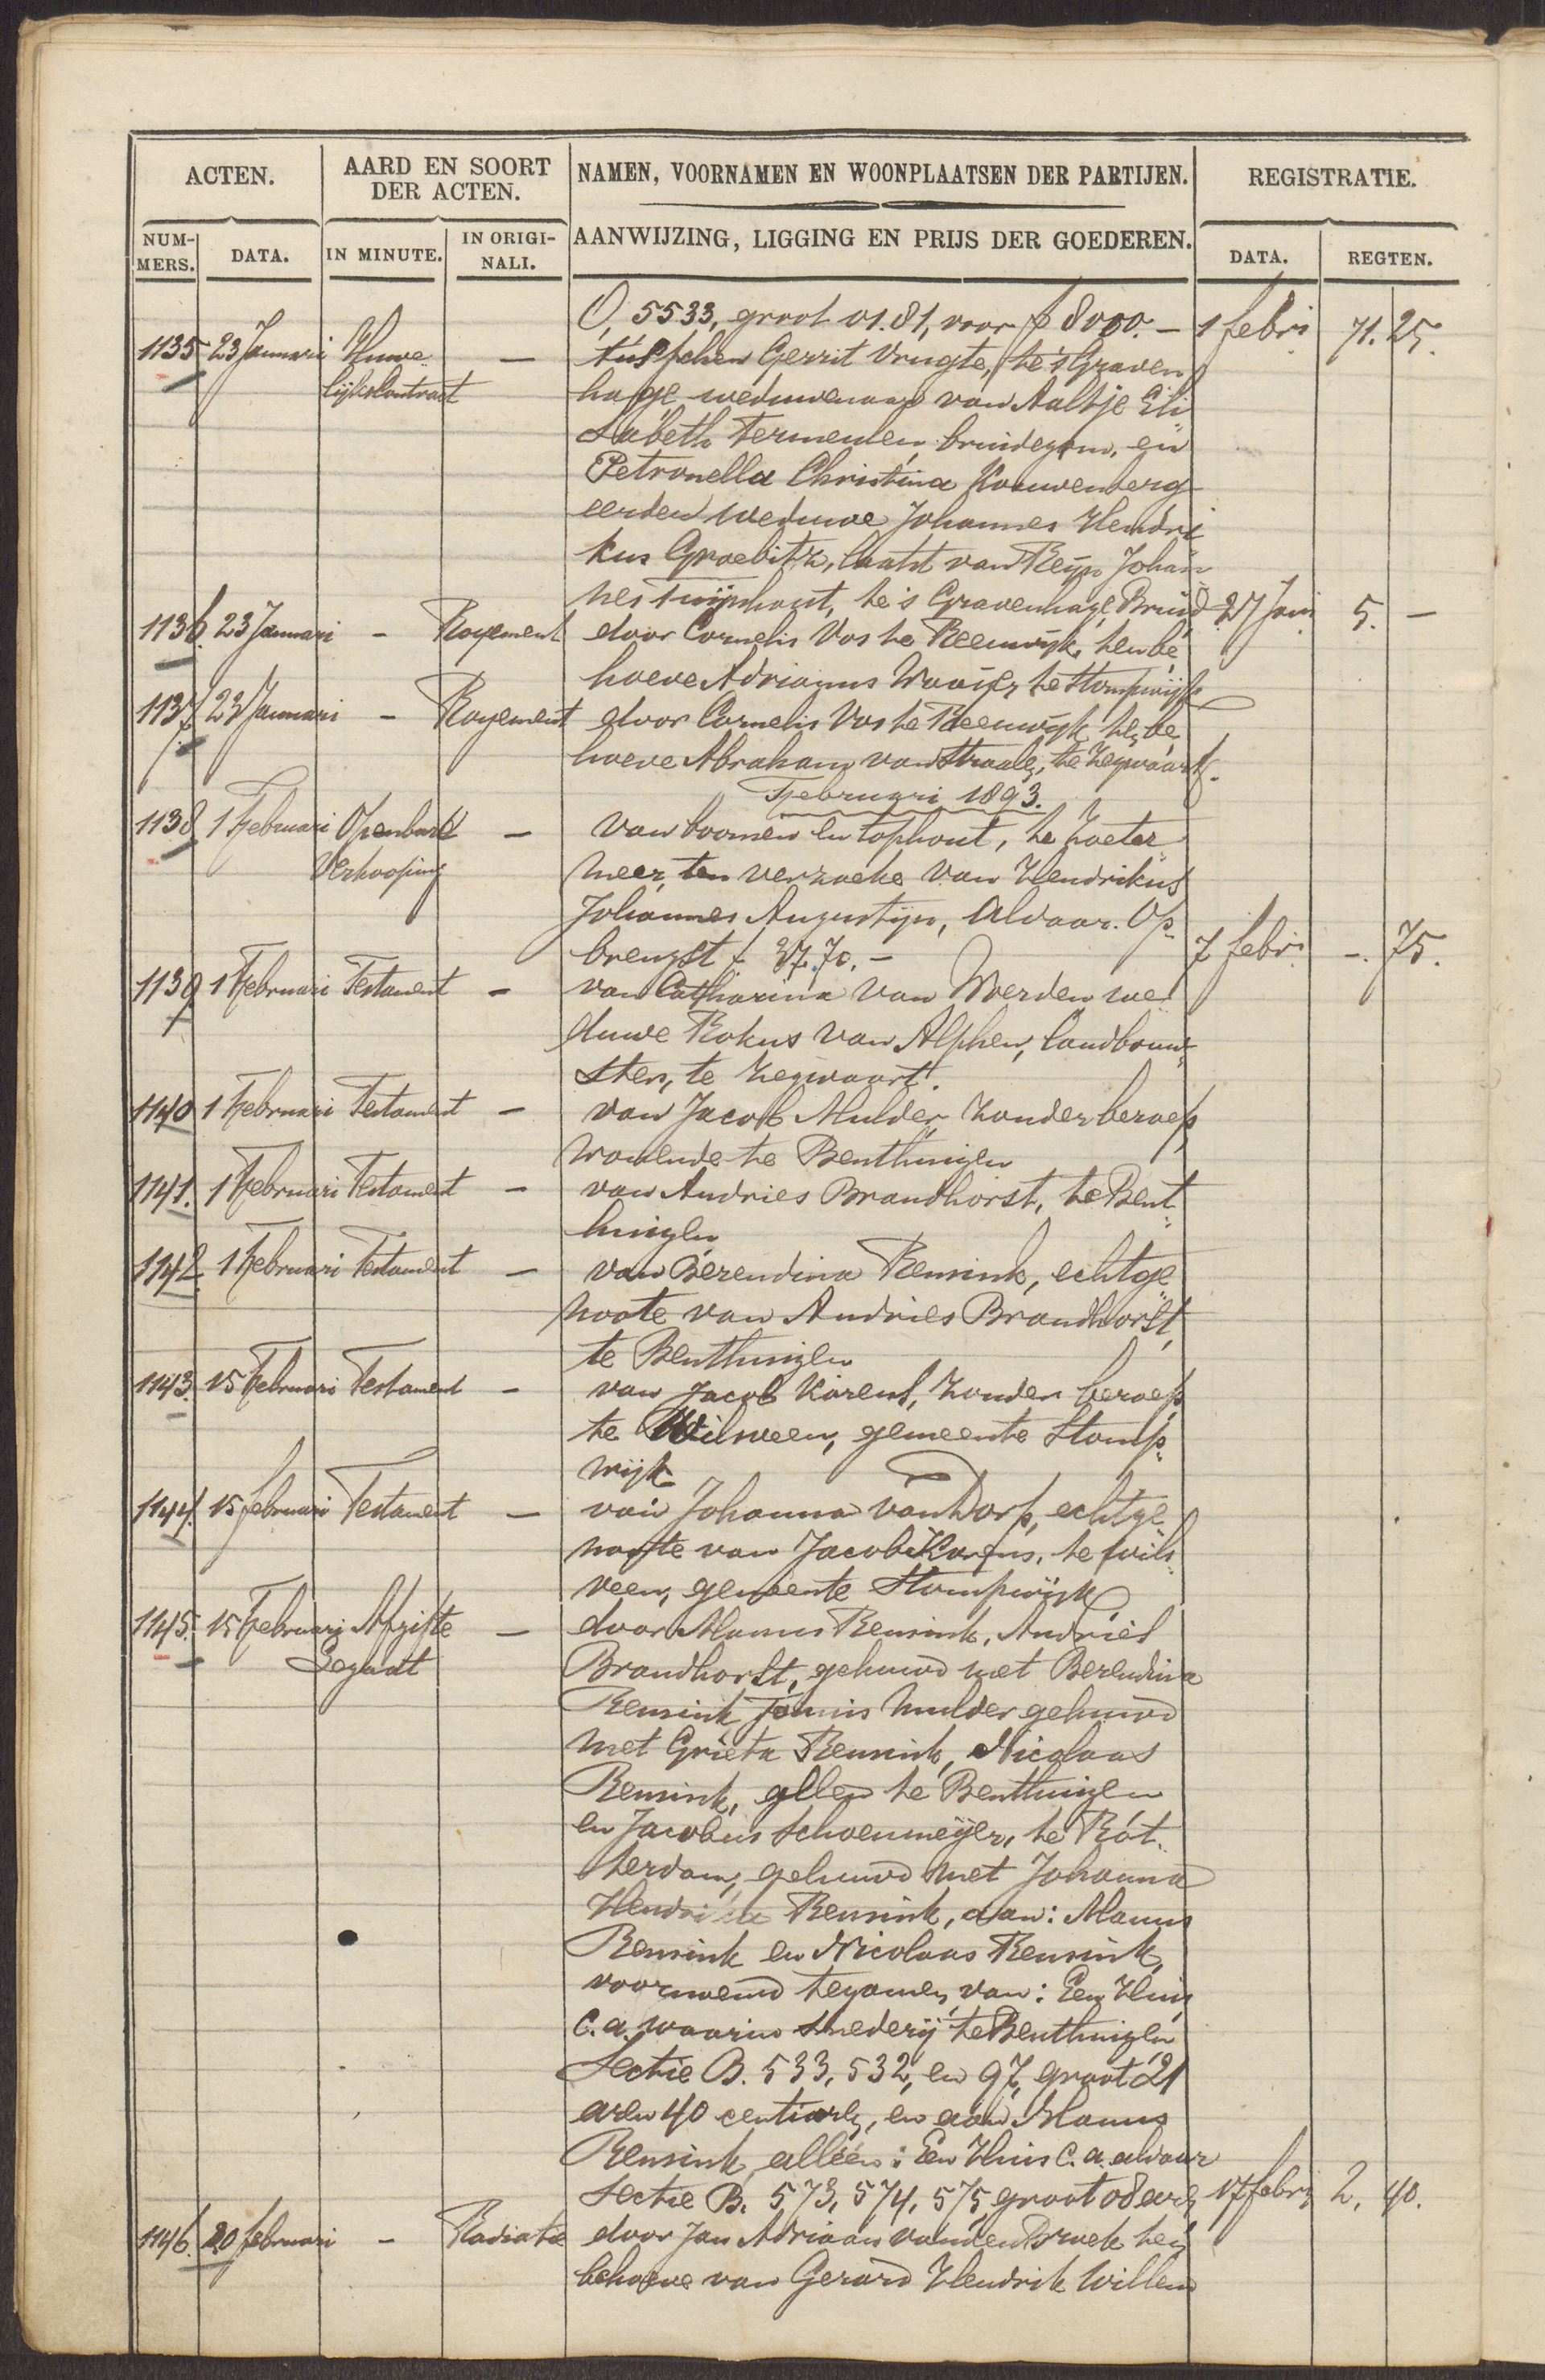 ACTEN.
AARD EN SOORT
DER ACTEN.
NAMEN, VOORNAMEN EN WOONPLAATSEN DER PARTIJEN.
REGISTRATIE.
NUM-
MERS.
DATA.
IN MINUTE.
IN ORIGI-
NALI.
AANWIJZING, LIGGING EN PRIJS DER GOEDEREN.
DATA.
REGTEN.
O, 5533, groot 01.81, voor ƒ 8000.- 1 febri 71. 25.
1135 23 Januari Huwe - tusschen Gerrit Vrugte, te 's Graven
lijkskontract hage weduwenaar van Aaltje Eli
sabeth Termeulen bruidegom, en
Petronella Christina Kouwenberg
eerder weduwe Johannes Hendri
kus Groebitz, laatst van Reijn Johan
nes Tuijnhout, te 's Gravenhage, Bruid 27 Jani 5. -
1136. 23 Januari - Royement door Cornelis Vos te Reeuwijk, ten be
hoeve Adrianus Wooijer te Stompwijk
1137. 23 Januari - Royement door Cornelis Vos te Reeuwijk ten be
hoeve Abraham van Straale, te Zegwaart.
Februari 1893.
1138 1 Februari Openbare - van boomen en tophout, te Zoeter
Verkooping meer, ten verzoeke van Hendrikus
Johannes Augustijn, aldaar. Op-
brengst ƒ 37.70.- 7 febri -. 75.
1139 1 Februari Testament - van Catharina van Woerden we
duwe Rokus van Alphen, landbouw-
ster, te Zegwaart.
1140 1 Februari Testament - van Jacob Mulder, zonder beroep,
wonende te Benthuizen
1141. 1 Februari Testament - van Andries Brandhorst, te Bent
huizen
1142. 1 Februari Testament - van Berendina Rensink, echtge
noote van Andries Brandhorst,
te Benthuizen
1143. 15 Februari Testament - van Jacob Karens, zonder beroep,
te Wilsveen, gemeente Stomp-
wijk
1144. 15 februari Testament - van Johanna van Dorp, echtge
noote van Jacob Karens, te Wils
veen, gemeente Stompwijk
1145. 15 Februarij Afgifte - door Manus Rensink, Andries
Legaat Brandhorst, gehuwd met Berendina
Rensink, Teunis Mulder gehuwd
met Grieta Rensink, Nicolaas
Rensink, allen te Benthuizen
en Jacobus Schoenmeijer, te Rot-
terdam, gehuwd met Johanna
Hendrika Rensink, aan: Manus
Rensink en Nicolaas Rensink,
voornoemd tezamen, van: Een Huis
c.a. waarin smederij te Benthuizen
Sectie B. 533, 532, en 97, groot 21
aren 40 centiaren, en aan Manus
Rensink alleen: Een Huis c.a. aldaar
Sectie B. 573, 574, 575 groot 08 aren 17 febri 2. 40.
1146. 20 februari - Radiatie door Jan Adriaan van den Broek ten
behoeve van Gerard Hendrik Willem